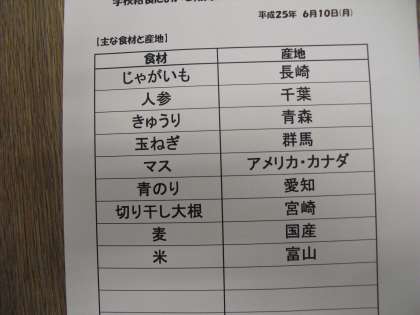 学校給食における
平成25年 6月10日(月)
【主な食材と産地】
食材 産地
じゃがいも 長崎
人参 千葉
きゅうり 青森
玉ねぎ 群馬
マス アメリカ・カナダ
青のり 愛知
切り干し大根 宮崎
麦 国産
米 富山